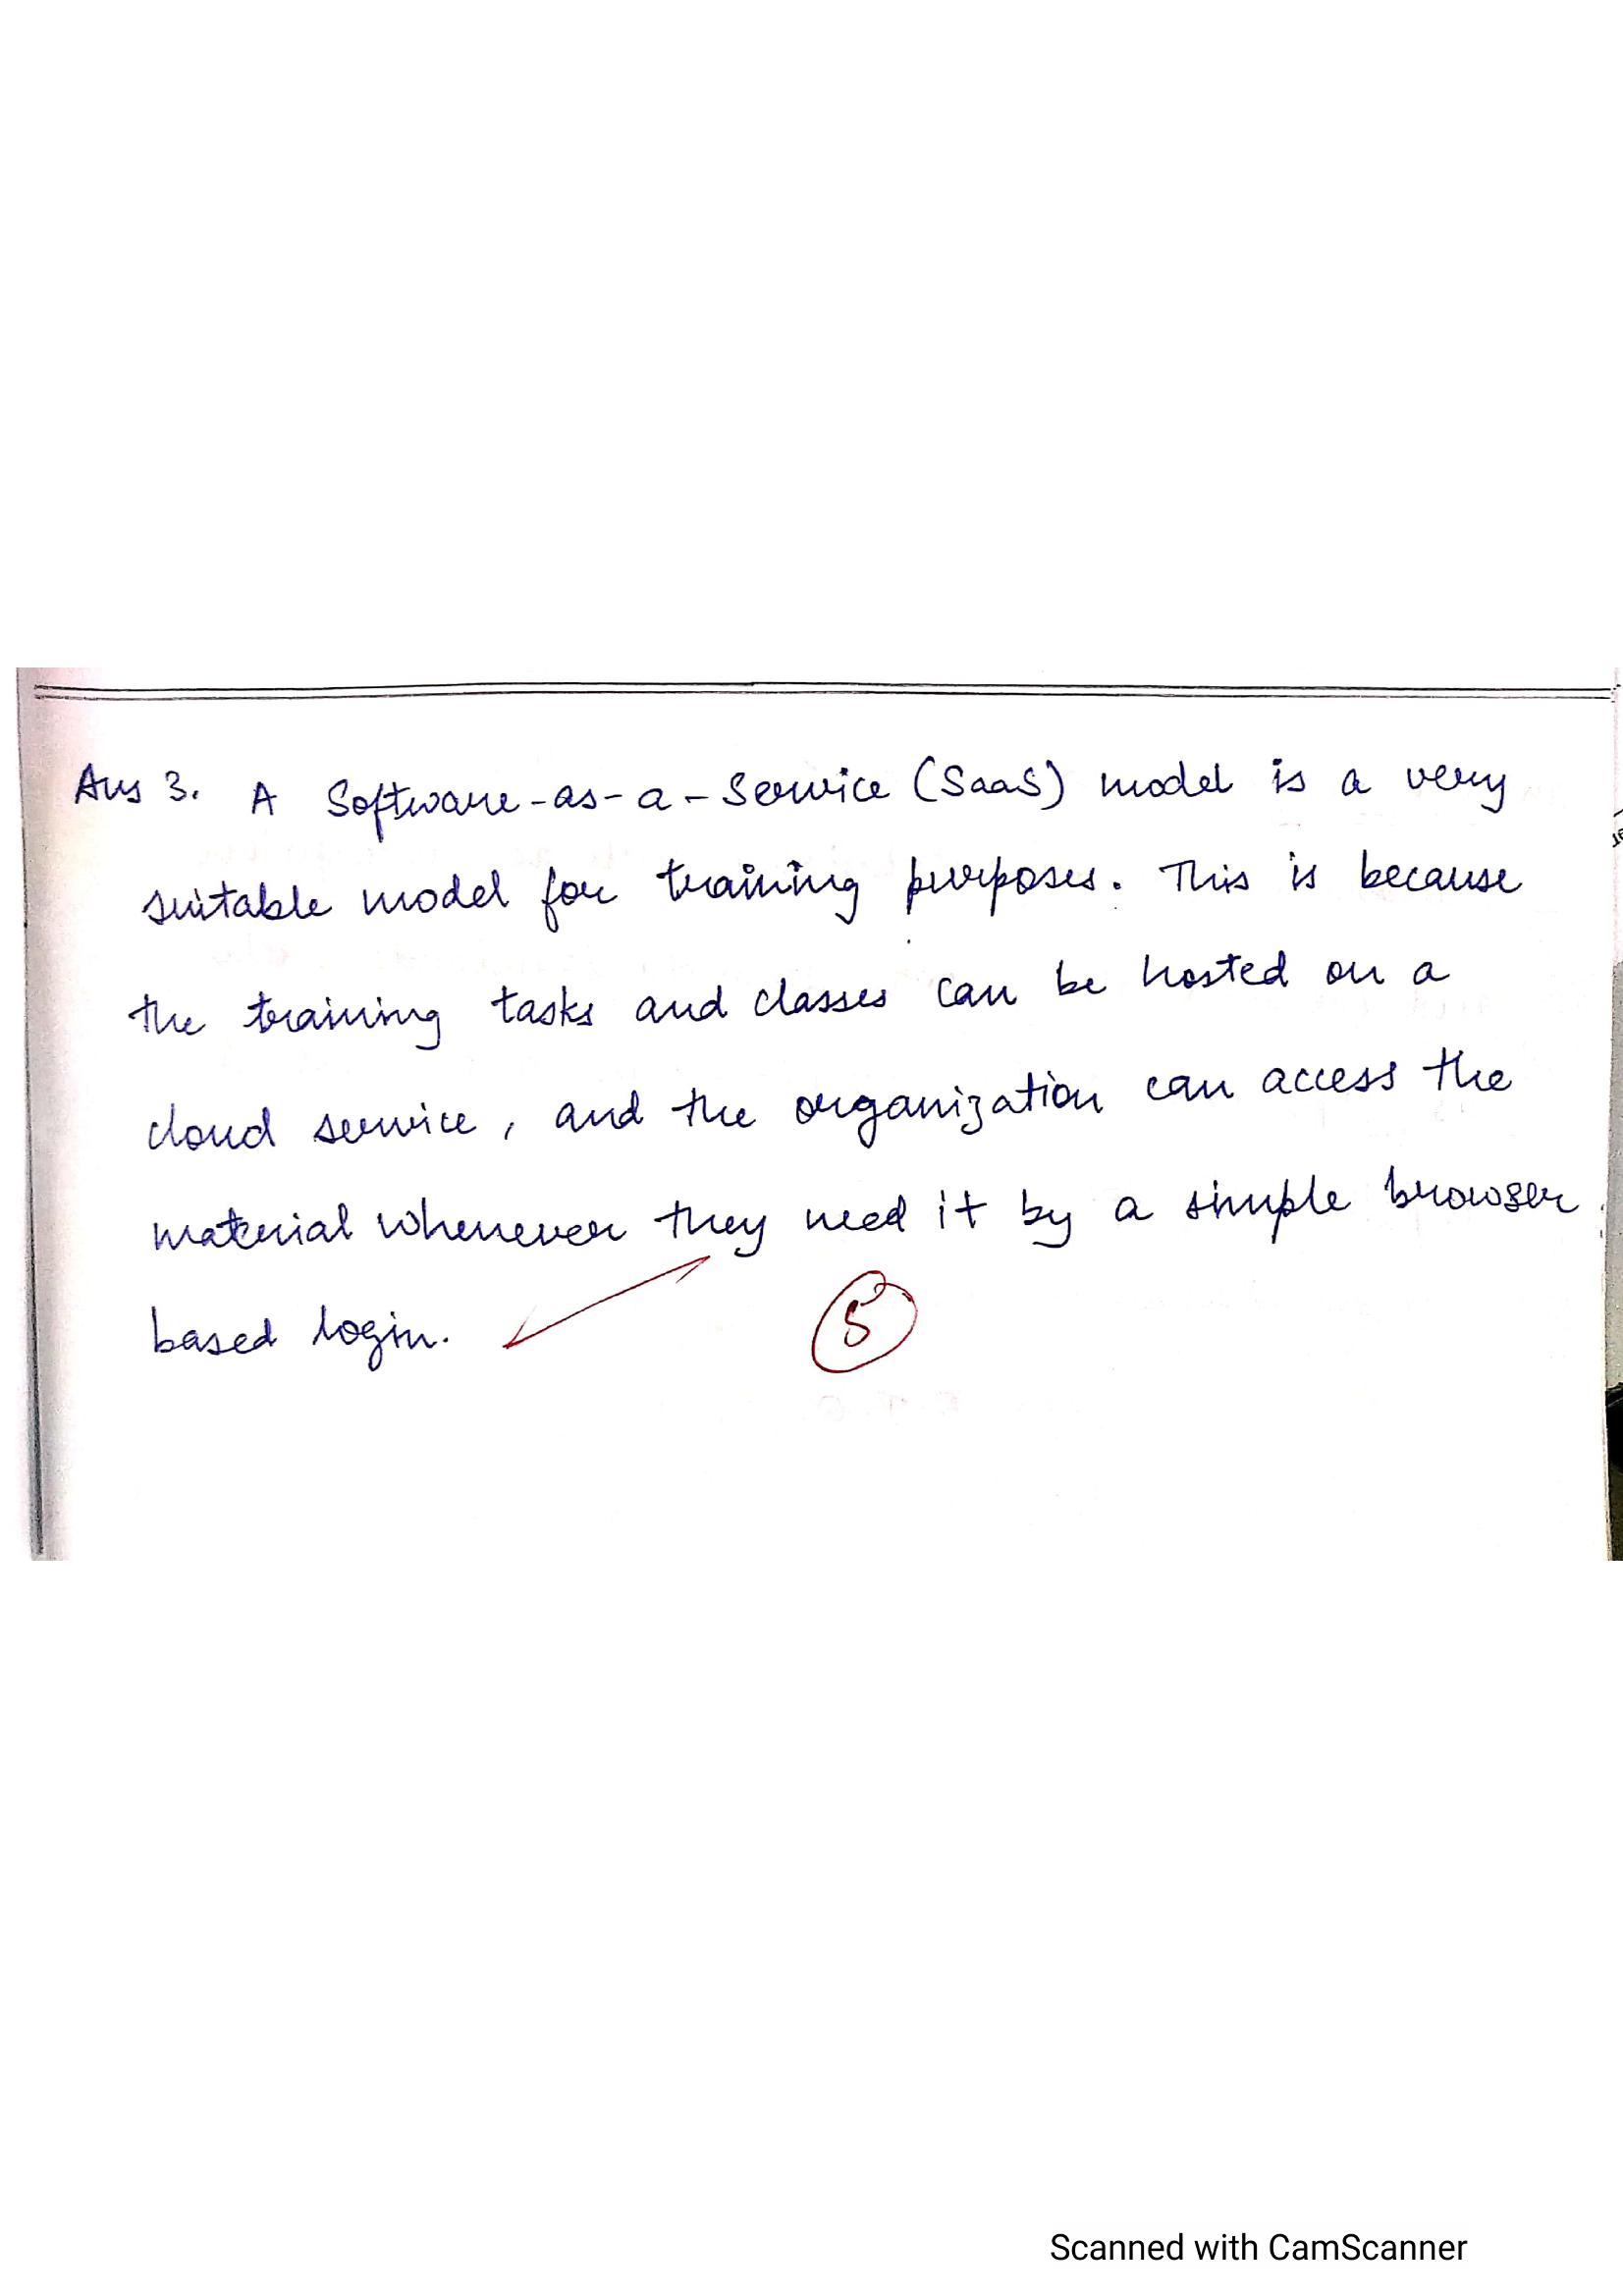 Ans 3. A Software-as-a-Service (SaaS) model is a very
suitable model for training purposes. This is because
the training tasks and classes can be hosted on a
cloud service, and the organization can access the
material whenever they need it by a simple browser
based login.
5
Scanned with CamScanner